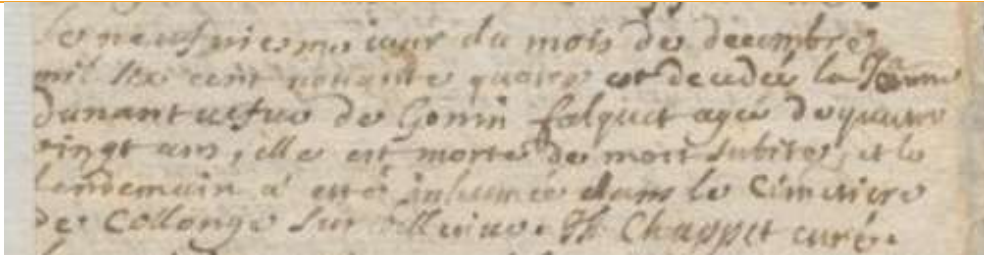 Le neufviesme iour du mois de decembre
mil six cent nonante quatre est decedée la Jeanne
Dunant vefue de Gonin falquet agée de quatre
vingt ans, elle est morte de mort subite, et le
lendemain a esté inhumée dans le Cimetiere
de Collonge sur Th Chappet curé.